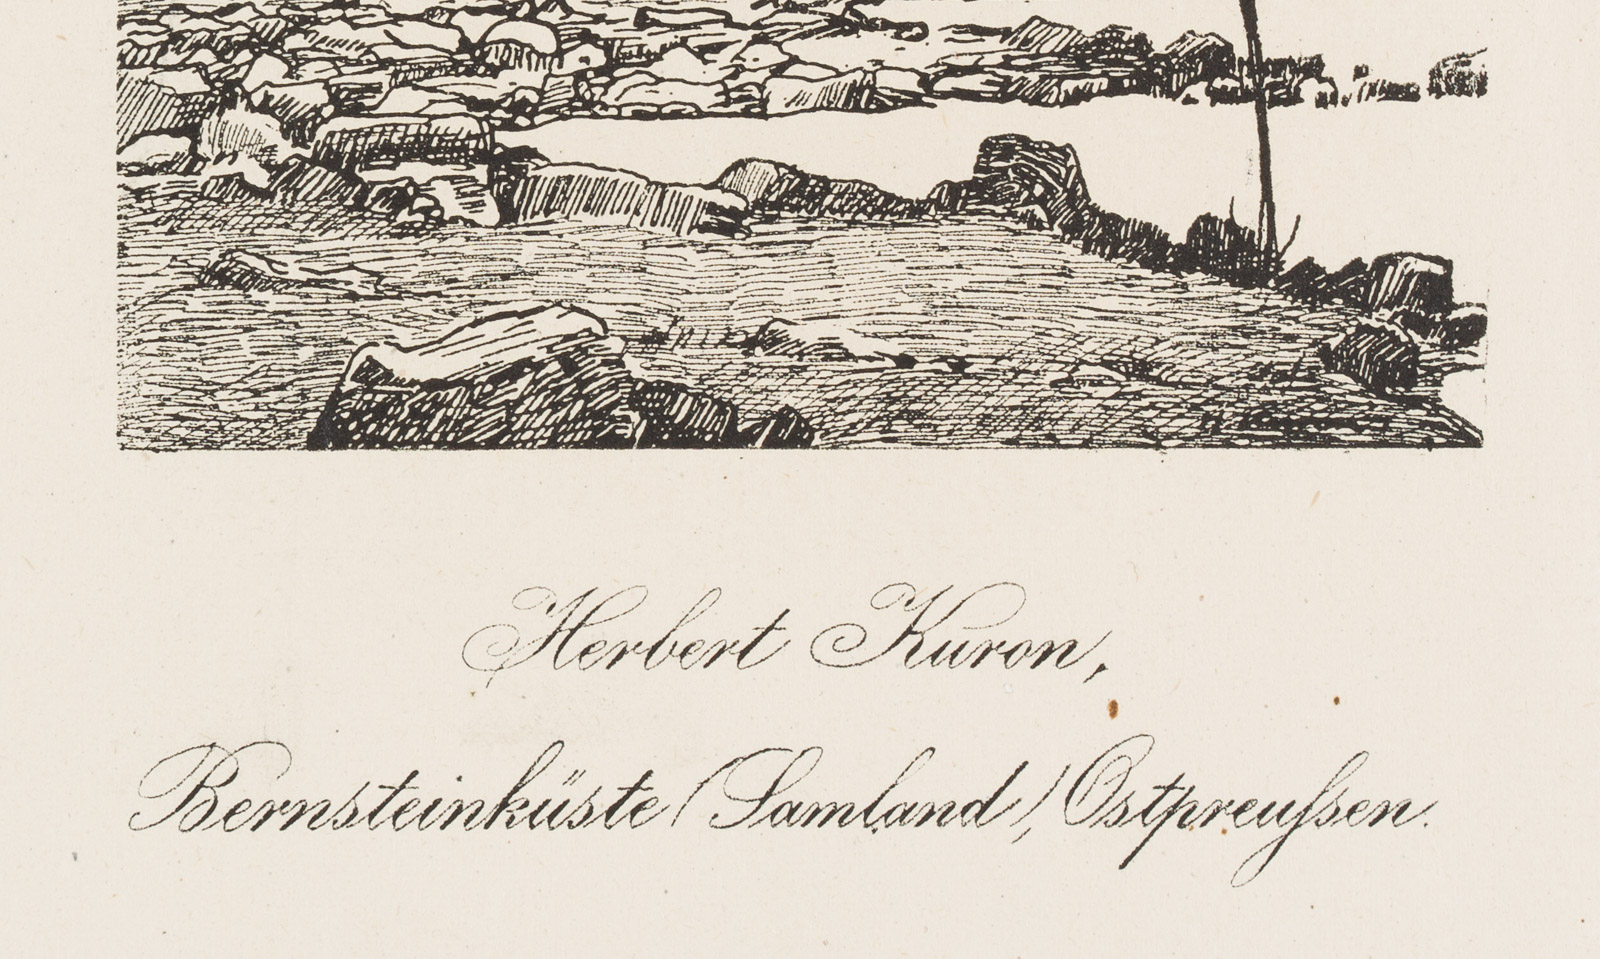 Herbert Kuron,
Bernsteinküste (Samland), Ostpreuſsen.